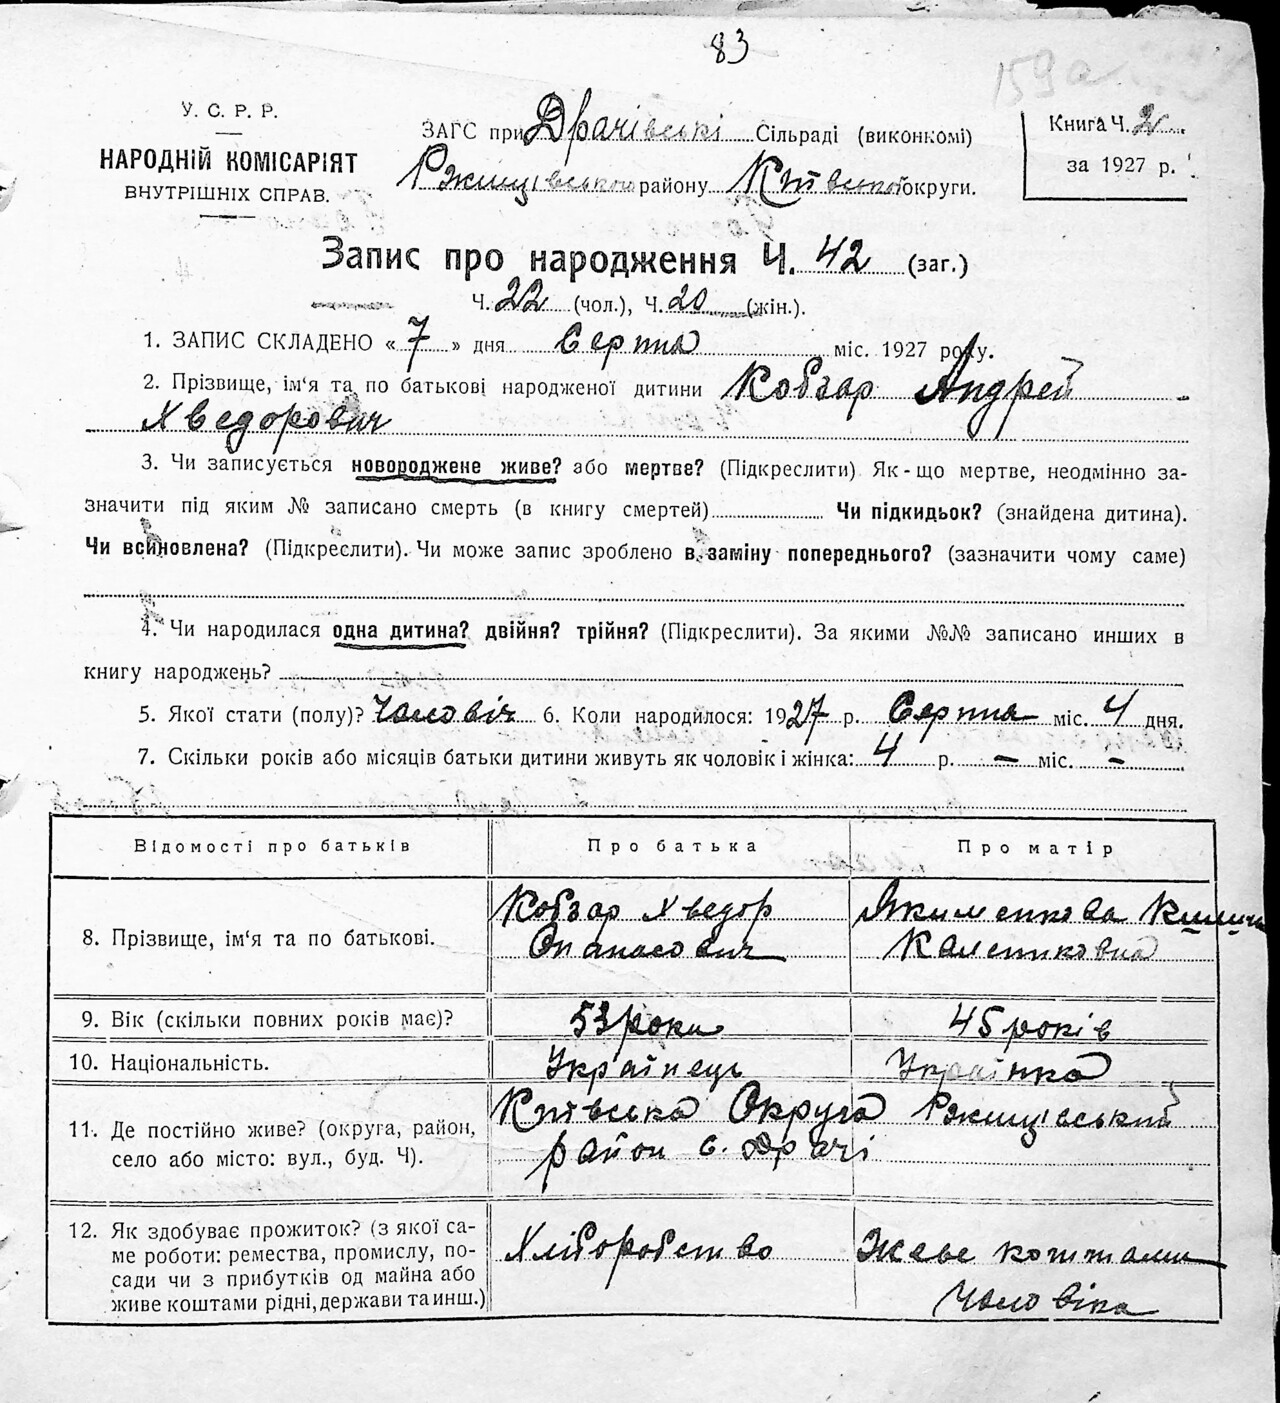 83
159а
У. С. Р. Р.
НАРОДНІЙ КОМІСАРІЯТ
ВНУТРІШНІХ СПРАВ.
ЗАГС при Драчівські Сільраді (виконкомі)
Ржищівського району Київської округи.
Книга Ч. 2
за 1927 р.
Запис про народження Ч. 42 (заг.)
Ч. 22 (чол.), Ч. 20 (жін.).
1. ЗАПИС СКЛАДЕНО « 7 » дня Серпня міс. 1927 року.
2. Прізвище, ім‘я та по батькові народженої дитини Кобзар Андрей
Хведорович
3. Чи записується новороджене живе? або мертве? (Підкреслити) Як-що мертве, неодмінно за-
значити під яким № записано смерть (в книгу смертей) Чи підкидьок? (знайдена дитина).
Чи всиновлена? (Підкреслити). Чи може запис зроблено в заміну попереднього? (зазначити чому саме)
4. Чи народилася одна дитина? двійня? трійня? (Підкреслити). За якими №№ записано инших в
книгу народжень?
5. Якої стати (полу)? Чоловіч 6. Коли народилося: 1927 р. Серпня міс. 4 дня.
7. Скільки років або місяців батьки дитини живуть як чоловік і жінка: 4 р. — міс. —
Відомості про батьків Про батька Про матір
8. Прізвище, ім‘я та по батькові. Кобзар Хведор Якименкова
Опанасович Калениковна
9. Вік (скільки повних років має)? 53 роки 45 років
10. Національність. Українець Українка
Київська Округа Ржищівський
11. Де постійно живе? (округа, район,
село або місто: вул., буд. Ч). район с. Драчі
12. Як здобуває прожиток? (з якої са-
ме роботи: ремества, промислу, по-
сади чи з прибутків од майна або
живе коштами рідні, держави та инш.) Хліборобство Жеве коштами
Чоловіка